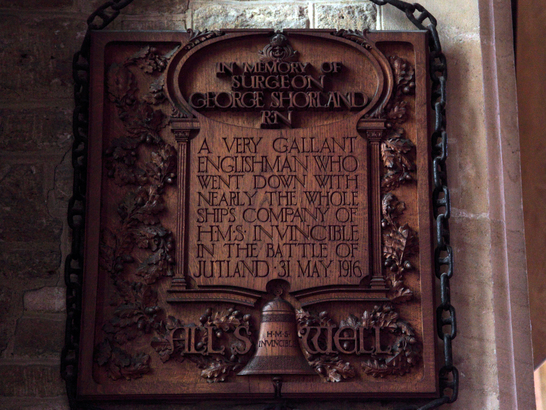 IN MEMORY OF
SURGEON
GEORGE SHORLAND
RN
A VERY GALLANT
ENGLISHMAN WHO
WENT DOWN WITH
NEARLY THE WHOLE
SHIPS COMPANY OF
H·M·S· INVINCIBLE
IN THE BATTLE OF
JUTLAND · 31 MAY 1916
ALL'S WELL
H·M·S
INVINCIBLE